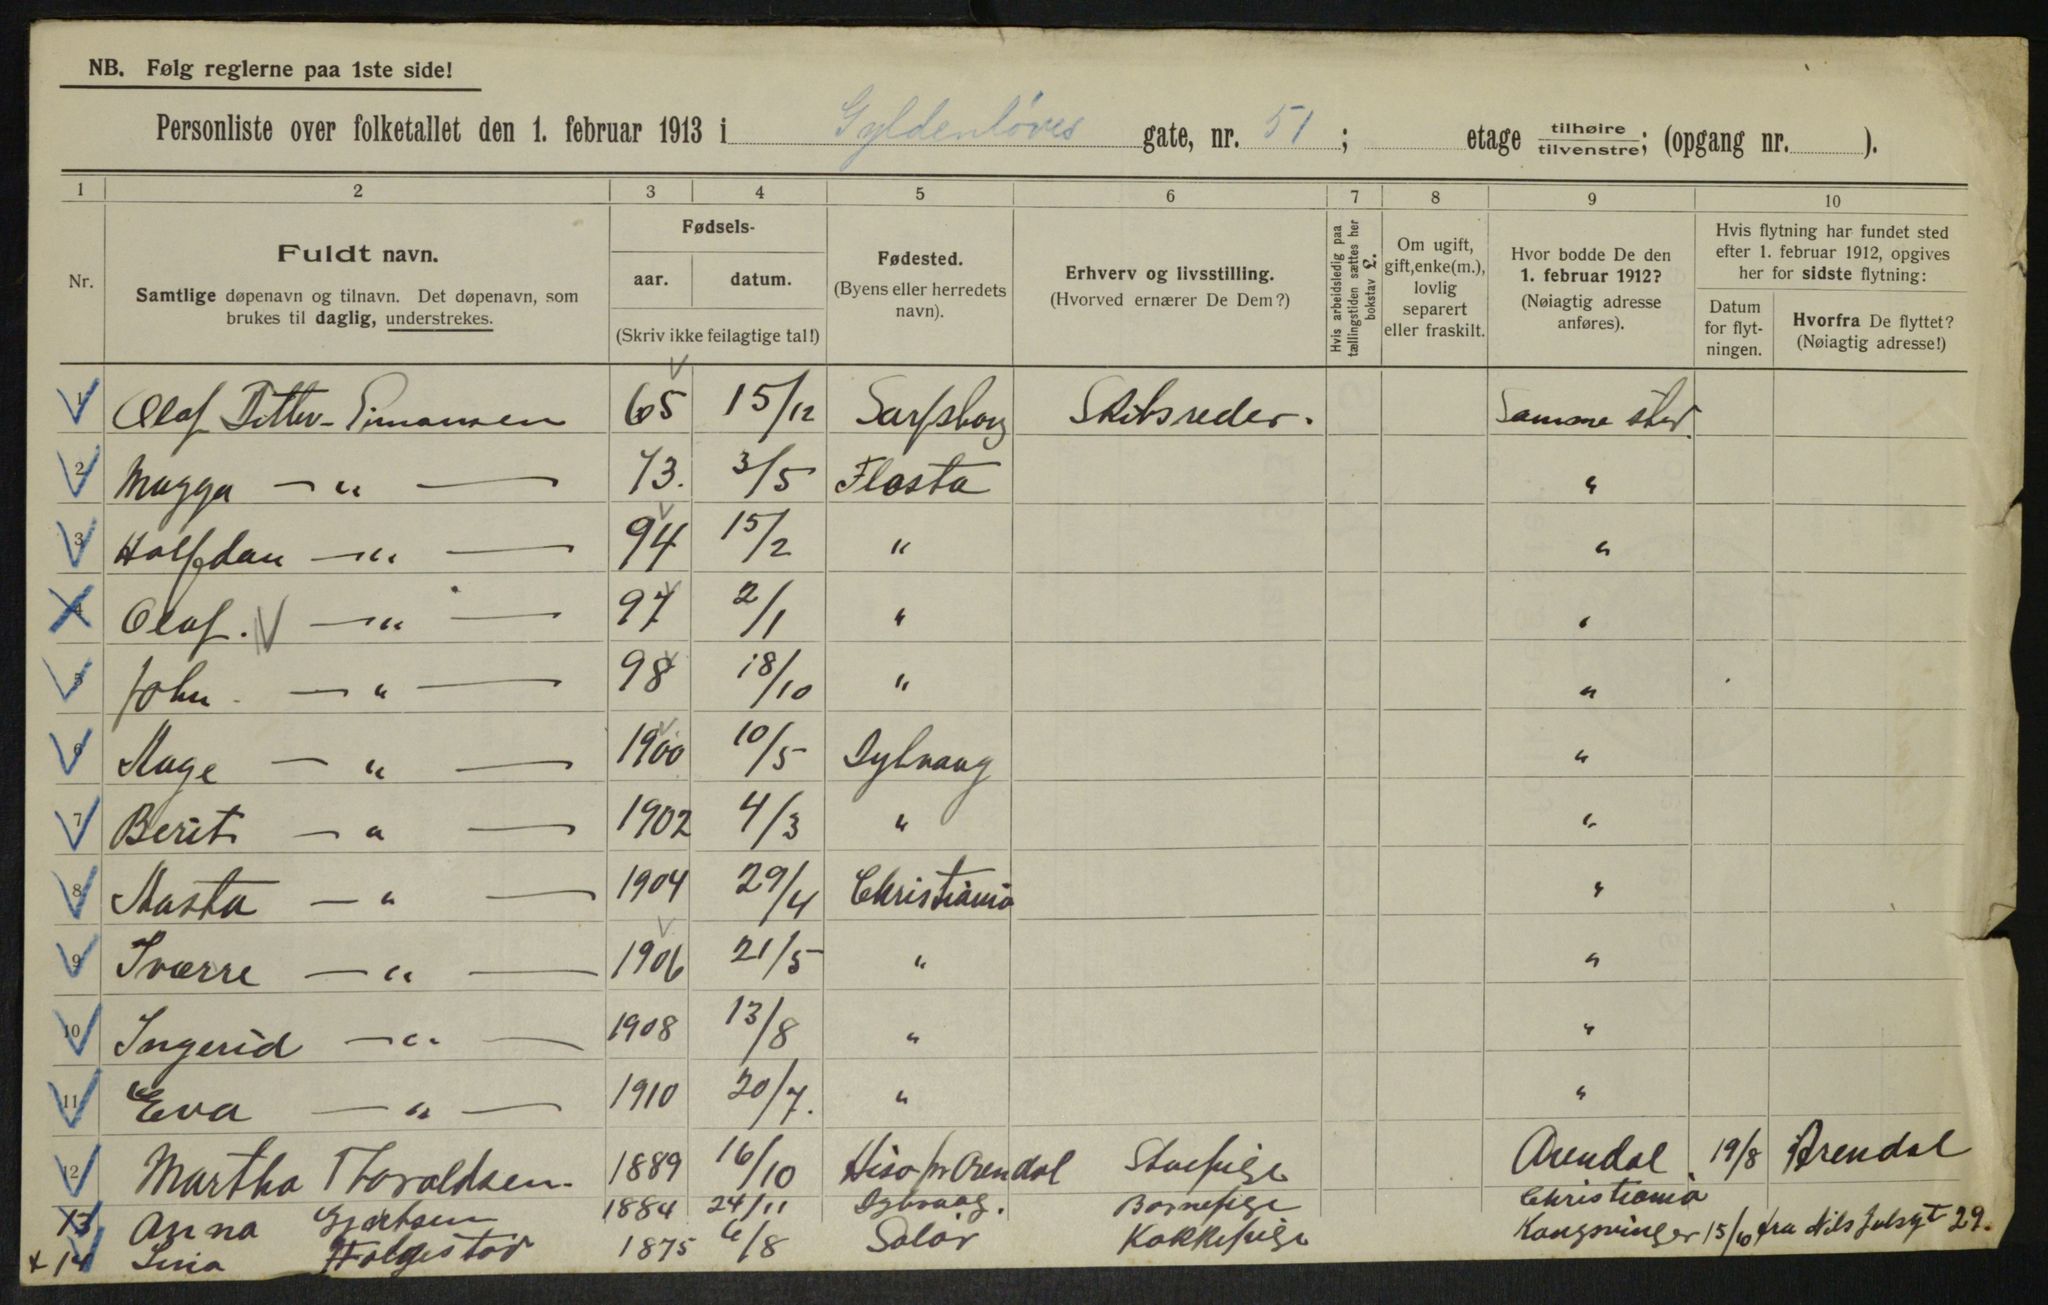 NB. Følg reglerne paa 1ste side!
Personliste over folketallet den 1. februar 1913 i Gyldenløves gate, nr. 51; etage tilhøire tilvenstre; (opgang nr. ).
1 2 3 4 5 6 7 8 9 10
Nr.
Fuldt navn.
Samtlige døpenavn og tilnavn. Det døpenavn, som
brukes til daglig, understrekes.
Fødsels-
aar. datum.
(Skriv ikke feilagtige tal!)
Fødested.
(Byens eller herredets
navn).
Erhverv og livsstilling.
(Hvorved ernærer De Dem?)
Hvis arbeidsledig paa
tællingstiden sættes her
bokstav L.
Om ugift,
gift, enke(m.),
lovlig
separert
eller fraskilt.
Hvor bodde De den
1. februar 1912?
(Nøiagtig adresse
anføres).
Hvis flytning har fundet sted
efter 1. februar 1912, opgives
her for sidste flytning:
Datum
for flyt-
ningen.
Hvorfra De flyttet?
(Nøiagtig adresse!)
1 Olaf Ditlev-Simonsen 65 15/12 Sarpsborg Skibsreder. Samme sted.
2 Magga — " — 73. 3/5 Flosta "
3 Halfdan — " — 94 15/2 " "
4 Olaf. — " — 97 2/1 " "
5 John — " — 98 18/10 " "
6 Aage — " — 1900 10/5 Dybvaag "
7 Berit — " — 1902 4/3 " "
8 Aasta — " — 1904 29/4 Christiania "
9 Sverre — " — 1906 21/5 " "
10 Ingerid — " — 1908 13/8 " "
11 Eva — " — 1910 20/7. " "
12 Martha Thoraldsen. 1889 16/10 Hisø pr Arendal Stuepige Arendal 19/8 Arendal
13 Anna Gjertsen 1884 24/11 Dybvaag. Barnepige Christiania
14 Lina 1875 6/8 Solør Kokkepige Kongsvinger 15/10 fra Nils Julsgt 29.